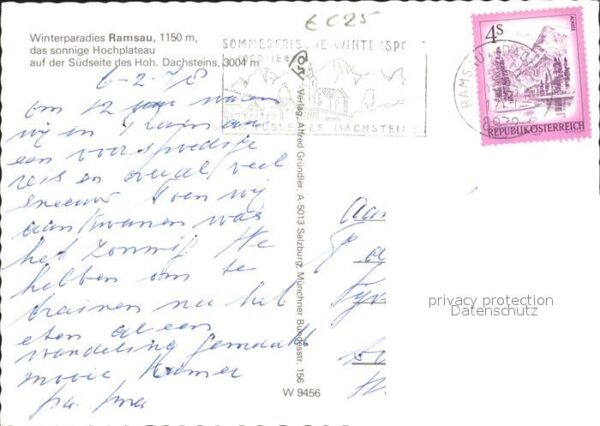 Winterparadies Ramsau, 1150 m,
das sonnige Hochplateau
auf der Südseite des Hoh. Dachsteins, 3004 m
€C25
6-2-78
Om 12 uur waren
wij in Ramsau
een voorspoedige
reis en overal veel
sneeuw Toen wij
aankwamen was
het zonnig We
hebben om te
trainen na het
eten al een
wandeling gemaakt
mooie kamer
pa. ma
Verlag Alfred Gründler, A-5013 Salzburg, Münchner Bundesstr. 156
W 9456
SOMMERFRISCHE-WINTERSPO
DACHSTEINS
RAMSAU
4S
REPUBLIK ÖSTERREICH
Aan
privacy protection
Datenschutz